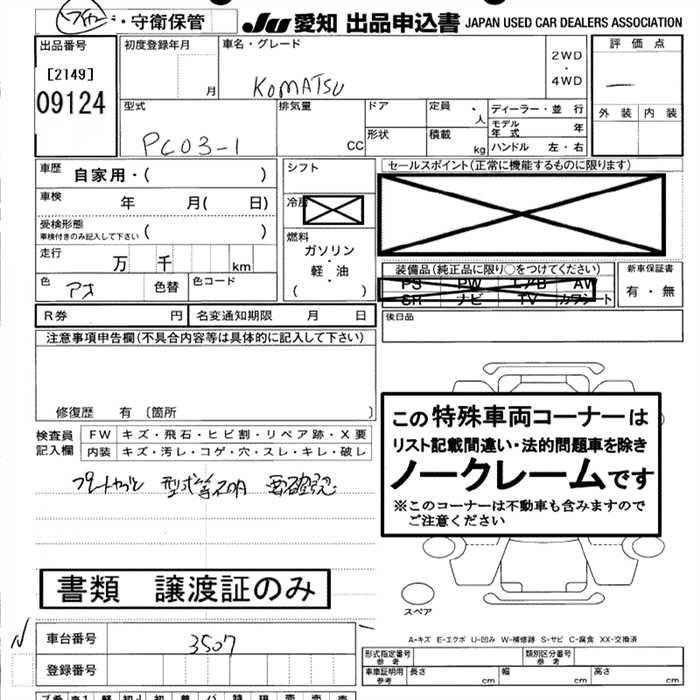 ・守衛保管
JU 愛知 出品申込書 JAPAN USED CAR DEALERS ASSOCIATION
出品番号
[2149]
09124
初度登録年月
月
車名・グレード
KOMATSU
2WD
・
4WD
評価点
―
外装 内装
型式
PC03-1
排気量
CC
ドア
形状
定員 ・ 人
積載 kg
ディーラー・並 行
モデル年式 年
ハンドル 左・右
車歴 自家用・( )
車検 年 月( 日)
受検形態
車検付きのみ記入して下さい ( )
走行 万 千 km
色 アオ 色替 色コード
シフト
冷房
燃料
ガソリン
・
軽・油
( )
セールスポイント(正常に機能するものに限ります)
装備品(純正品に限り○をつけてください)
PS PW エアB AW
SR ナビ TV カワシート
新車保証書
有・無
R券 円 名変通知期限 月 日
後日品
注意事項申告欄(不具合内容等は具体的に記入して下さい)
修復歴 有 〔箇所 〕
検査員記入欄
FW キズ・飛石・ヒビ割・リペア跡・X要
内装 キズ・汚レ・コゲ・穴・スレ・キレ・破レ
型式等不明 要確認
この特殊車両コーナーは
リスト記載間違い・法的問題車を除き
ノークレームです
※このコーナーは不動車も含みますので
ご注意ください
書類 譲渡証のみ
スペア
A-キズ E-エクボ U-凹み W-補修跡 S-サビ C-腐食 XX-交換済
N 車台番号 3507
登録番号
型式指定番号 参考 類別区分番号 参考
車庫証明用 参考 長さ cm 幅 cm 高さ cm